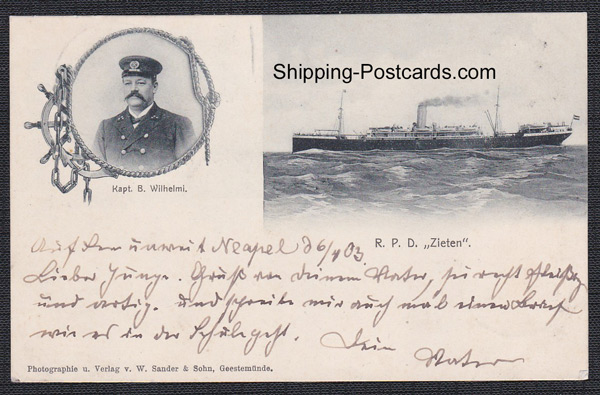 Shipping-Postcards.com
Kapt. B. Wilhelmi.
R. P. D. „Zieten“.
Auf dem unweit Neapel 03
Lieber Junge. Gruß von deinem Vater, sei recht fleißig
und artig. und schreibe mir auch mal einen Brief
wie es in der Schule geht. Dein
Vater
Photographie u. Verlag v. W. Sander & Sohn, Geestemünde.